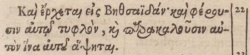 Καὶ ἔρχεται εἰς Βηθσαϊδάν· καὶ φέρου- 22
σιν αὐτῷ τυφλόν, καὶ παρακαλοῦσιν αὐ-
τὸν ἵνα αὐτοῦ ἅψηται.